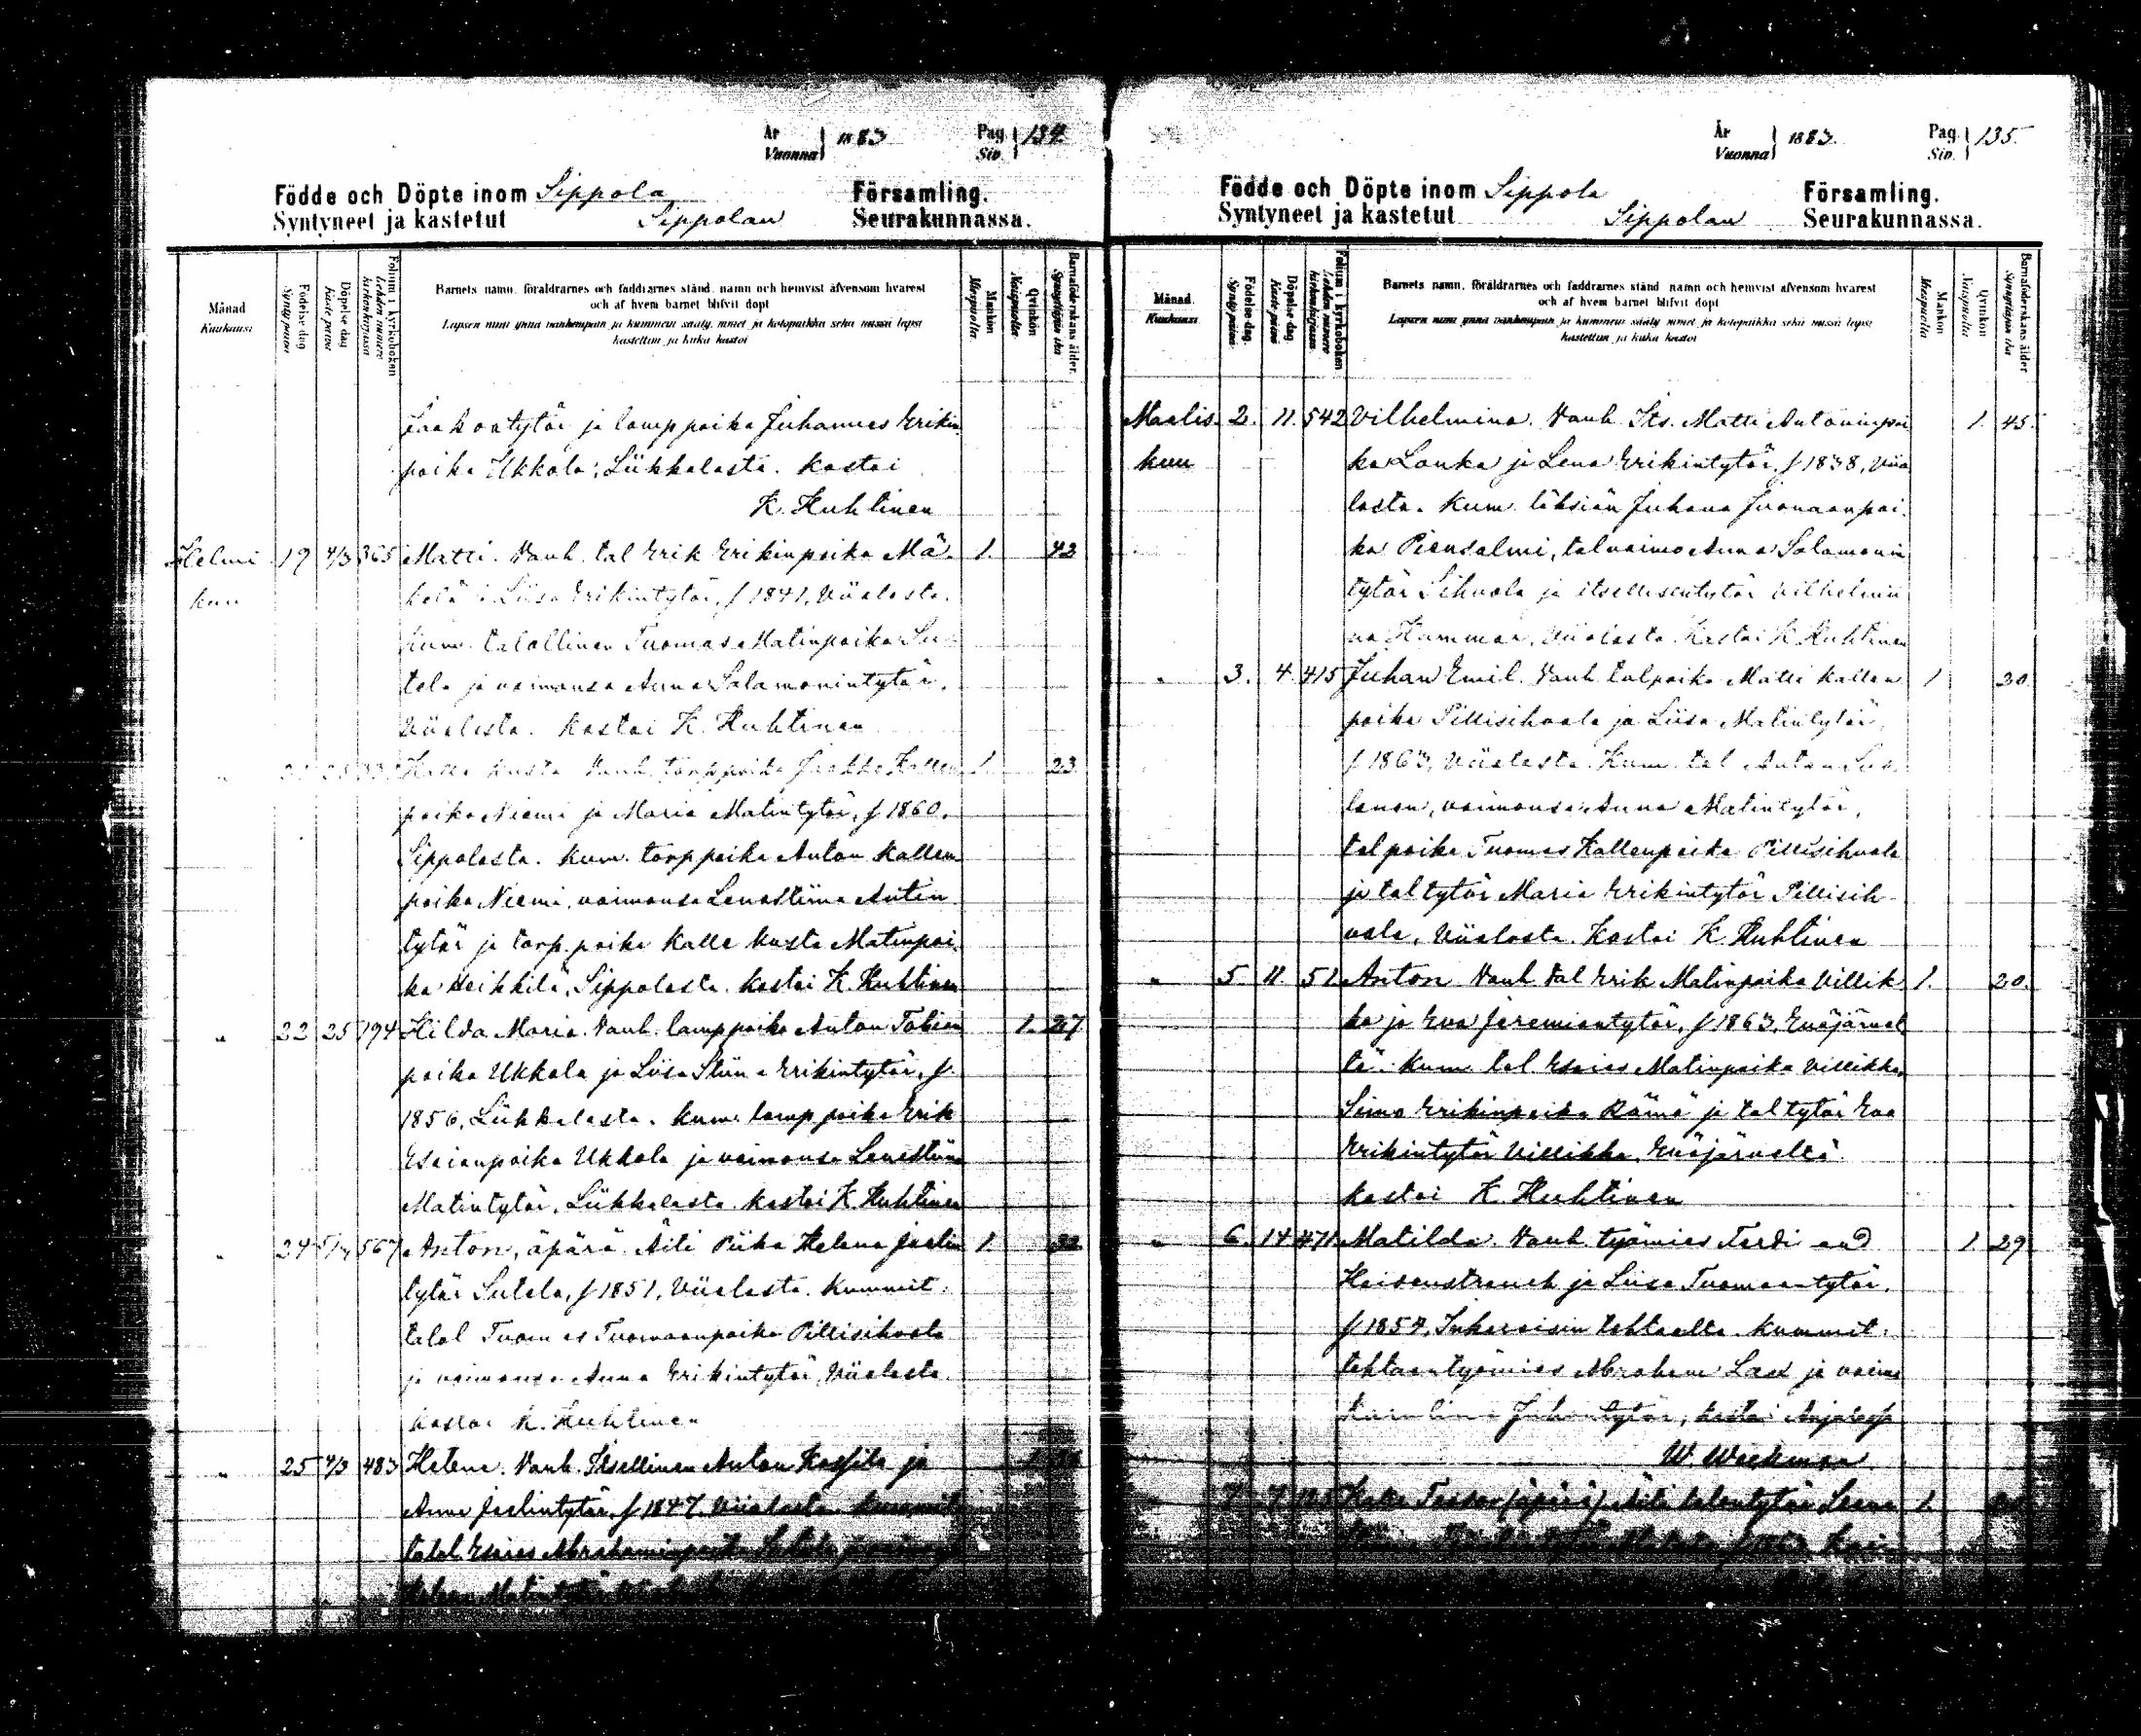 År Vuonna 1883 Pag. Siv. 134.
Födde och Döpte inom Sippola Församling.
Syntyneet ja kastetut Sippolan Seurakunnassa.
Månad Kuukausi
Födelse dag Synty päivä
Döpelse dag Kaste päivä
Folium i kyrkoboken Lehden numero kirkonkirjassa
Barnets namn, föräldrarnes och faddrarnes stånd, namn och hemvist äfvensom hvarest
och af hvem barnet blifvit döpt
Lapsen nimi ynnä vanhempain ja kummein sääty, nimet ja kotopaikka sekä missä lapsi
kastettiin ja kuka kastoi
Mankön Miespuolta
Qvinkön Vaimopuolta
Barnaföderskans ålder. Synnyttäjän ikä
Jaakontytär ja lamppoika Juhannes Erikin
poika Ukkola, Liikkalasta. Kastoi
K. Huhtinen
Helmi 19 4/3 365 Matti. Vanh. tal Erik Erikinpoika Mä- 1. 42
kuu kelä ja Liisa Erikintytär, f 1841, Viialasta.
Kum. talollinen Tuomas Matinpoika Su-
tela ja vaimonsa Anna Salamonintytär,
Viialasta. Kastoi K. Huhtinen
" Kalle Kusta Vanh. torppoika Jaakko Kallen 1. 23
poika Niemi ja Maria Matintytär, f 1860.
Sippolasta. Kum. torppoika Anton Kallen
poika Niemi, vaimonsa Lenastiina Antin
tytär ja torp. poika Kalle Kusta Matinpoi-
ka Heikkilä, Sippolasta. Kastoi K. Huhtinen
" 22 25 194 Hilda Maria. Vanh. lamppoika Anton Tobian 1. 27
poika Ukkola ja Liisa Stiina Erikintytär, f.
1856, Liikkalasta. Kum. lamppoika Erik
Esaianpoika Ukkola ja vaimonsa Lenastiina
Matintytär, Liikkalasta. Kastoi K. Huhtinen
" 24 567 Anton, äpärä. Äiti Piika Helena Joelin 1. 32
tytär Sutela, f 1851, Viialasta. Kummit:
talol Tuomas Tuomaanpoika Pillisihvola
ja vaimonsa Anna Erikintytär, Viialasta.
Kastoi K. Huhtinen
" 25 4/3 483 Helena. Vanh. Itsellinen Anton Kassila ja 1
Anna Joelintytär, f 1847. Viialasta. Kummit
talol. Esaias Abrahaminpoika
Helena Matintytär
År Vuonna 1883. Pag. Siv. 135.
Födde och Döpte inom Sippola Församling.
Syntyneet ja kastetut Sippolan Seurakunnassa.
Månad. Kuukausi
Födelse dag. Synty päivä
Döpelse dag Kaste päivä
Folium i kyrkoboken Lehden numero kirkonkirjassa
Barnets namn, föräldrarnes och faddrarnes stånd namn och hemvist äfvensom hvarest
och af hvem barnet blifvit döpt
Lapsen nimi ynnä vanhempain ja kummein sääty nimet ja kotopaikka sekä missä lapsi
kastettiin ja kuka kastoi
Mankön Miespuolta
Qvinkön Vaimopuolta
Barnaföderskans ålder Synnyttäjän ikä
Maalis 2. 11. 542 Vilhelmina. Vanh. Its. Matti Antoninpoi 1. 45.
kuu ka Lonka ja Lena Erikintytär, f 1838, Viia
lasta. Kum. läksiän Juhana Juonaanpoi-
ka Piensalmi, tal vaimo Anna Salamonin
tytär Sihvola ja itsellisentytär Vilhelmii
na Hammar, Viialasta. Kastoi K. Huhtinen
" 3. 4. 415 Juhan Emil. Vanh. talpoika Matti Kallen 1 20.
poika Pillisihvola ja Liisa Matintytär,
f 1863, Viialasta. Kum. tal Anton
vaimonsa Anna Matintytär,
talpoika Tuomas Kallenpoika Pillisihvola
ja taltytär Maria Erikintytär Pillisih-
vola, Viialasta. Kastoi K. Huhtinen
" 5. 11. 51 Anton. Vanh. tal Erik Matinpoika Villik- 1. 20.
ka ja Eva Jeremiantytär, f 1863, Enäjärvel
tä. Kum. tal Esaias Matinpoika Villikka,
Simo Erikinpoika Rämä ja taltytär Eva
Erikintytär Villikka, Enäjärveltä.
Kastoi K. Huhtinen
" 6. 14 471 Matilda. Vanh. työmies Ferdinand 1 29
ja Liisa Tuomaantytär,
f 1854, Inkeroisin tehtaalta. Kummit:
tehtaantyömies Abraham Lax ja vaimo
Karoliina Juhontytär, kastoi
W. Weckman
" 7. Kalle (äpärä) Äiti talontytär Leena 1.
f 1863